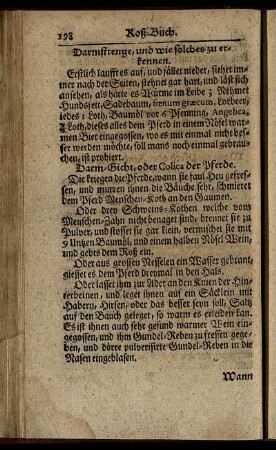 198 Roß-Buch.
Darmstrenge, und wie solches zu er-
kennen.
Erstlich laufft es auf, und fället nieder, siehet im-
mer nach der Seiten, stehnet gar hart, und läst sich
ansehen, als hätte es Würme im Leibe; Nehmet
Hundsfett, Sadebaum, fœnum græcum, Lorbeer,
iedes 1 Loth, Baumöl vor 6 Pfenning, Angelica,
Loth, dieses alles dem Pferd in einem Nösel war-
men Bier eingegossen, wo es mit einmal nicht bes-
ser werden möchte, soll mans noch einmal gebrau-
chen, ist probiert.
Darm-Gicht, oder Colica der Pferde.
Die kriegen die Pferde, wann sie faul Heu gefres-
sen, und murren ihnen die Bäuche sehr, schmieret
dem Pferd Menschen-Koth an den Gaumen.
Oder drey Schweins-Kothen welche vom
Menschen-Zahn nicht benaget sind, brennet sie zu
Pulver, und stosset sie gar klein, vermischet sie mit
9 Untzen Baumöl, und einem halben Nösel Wein,
und gebts dem Roß ein.
Oder aus grossen Nesselen ein Wasser gebrant,
giesset es dem Pferd dreymal in den Hals.
Oder lasset ihm zur Ader an den Knien der Hin-
terbeinen, und leget ihnen auf ein Säcklein mit
Habern, Hirsen, oder das besser seyn soll, Saltz
auf den Bauch geleget, so warm es erleiden kan.
Es ist ihnen auch sehr gesund warmer Wein ein-
gegossen, und ihm Gundel-Reben zu fressen gege-
ben, und dörre pulverisirte Gundel-Reben in die
Nasen eingeblasen.
Wann